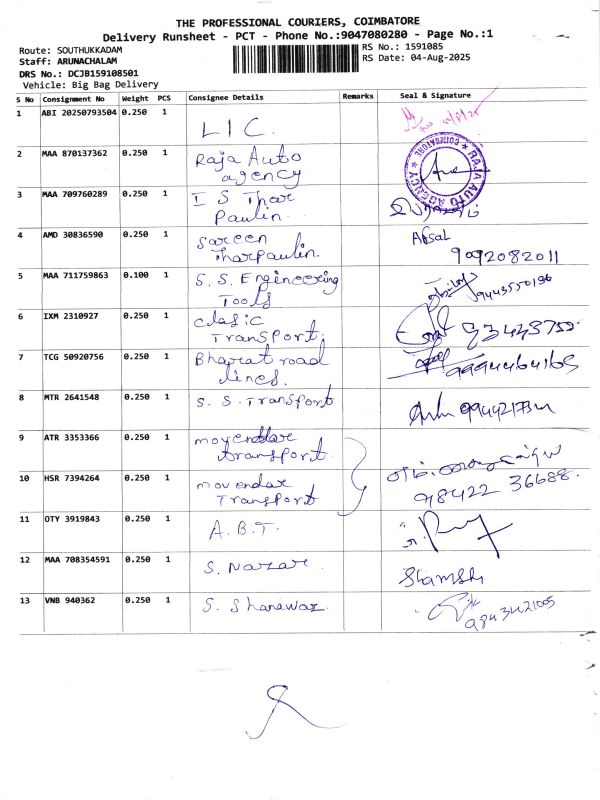 THE PROFESSIONAL COURIERS, COIMBATORE
Delivery Runsheet - PCT - Phone No.:9047080280 - Page No.:1
Route: SOUTHUKKADAM
RS No.: 1591085
Staff: ARUNACHALAM
RS Date: 04-Aug-2025
DRS No.: DCJB159108501
Vehicle: Big Bag Delivery
S No Consignment No Weight PCS Consignee Details Remarks Seal & Signature
1 ABI 20250793504 0.250 1 LIC.
2 MAA 870137362 0.250 1 Raja Auto
agency
COIMBATORE RAJA AUTO AGENCY
3 MAA 709760289 0.250 1 I S Thar
Paulin.
4 AMD 30836590 0.250 1 Sareen
Tharpaulin.
Afsal
9092082011
5 MAA 711759863 0.100 1 S. S. Engineering
Tools
9443550196
6 IXM 2310927 0.250 1 Clasic
Transport.
7 TCG 50920756 0.250 1 Bharat road
lines.
9994464165
8 MTR 2641548 0.250 1 S. S. Transport
9 ATR 3353366 0.250 1 movendar
transport.
10 HSR 7394264 0.250 1 movendar
Transport
98422 36688.
11 OTY 3919843 0.250 1 A.B.T.
12 MAA 708354591 0.250 1 S. Nazar.
13 VNB 940362 0.250 1 S. Shanawaz.
9843421005